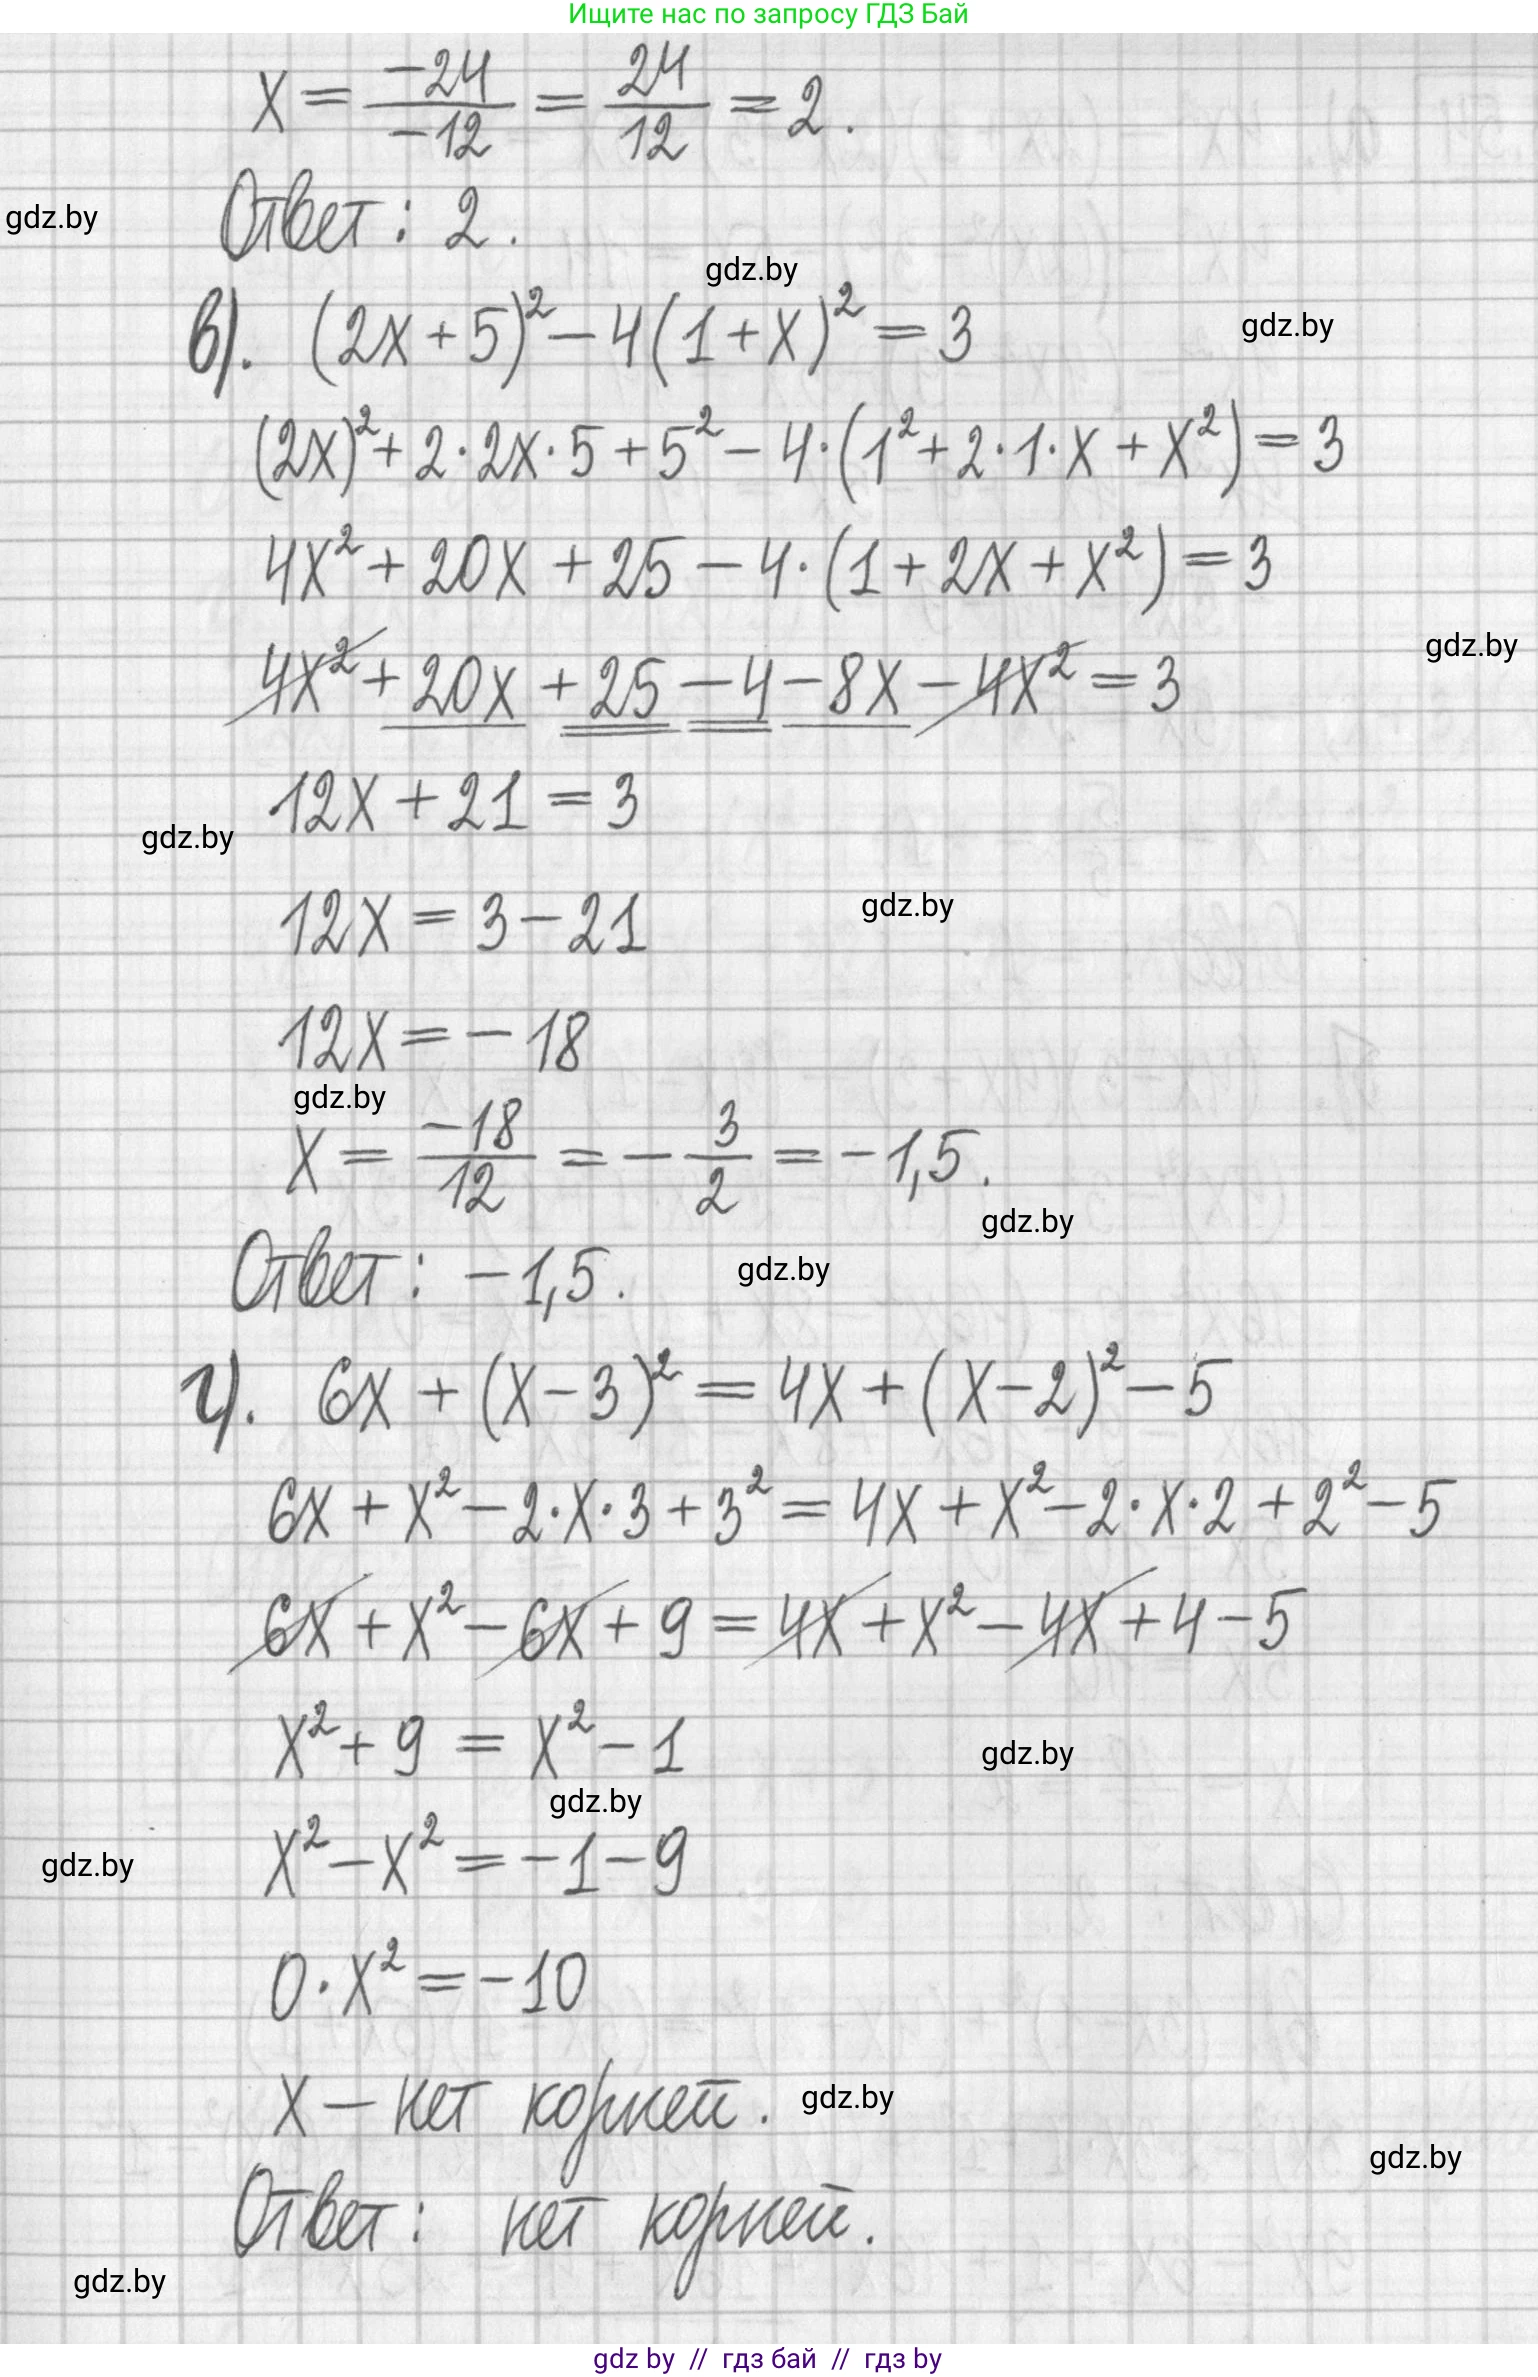 Ищите нас по запросу ГДЗ Бай
x = -24/-12 = 24/12 = 2.
Ответ: 2.
gdz.by
gdz.by
в). (2x + 5)² - 4(1 + x)² = 3
gdz.by
(2x)² + 2·2x·5 + 5² - 4·(1² + 2·1·x + x²) = 3
4x² + 20x + 25 - 4·(1 + 2x + x²) = 3
gdz.by
4x² + 20x + 25 - 4 - 8x - 4x² = 3
12x + 21 = 3
gdz.by
gdz.by
12x = 3 - 21
12x = -18
gdz.by
x = -18/12 = -3/2 = -1,5.
gdz.by
Ответ: -1,5.
gdz.by
г). 6x + (x - 3)² = 4x + (x - 2)² - 5
6x + x² - 2·x·3 + 3² = 4x + x² - 2·x·2 + 2² - 5
6x + x² - 6x + 9 = 4x + x² - 4x + 4 - 5
x² + 9 = x² - 1
gdz.by
gdz.by
x² - x² = -1 - 9
gdz.by
0·x² = -10
x - нет корней.
gdz.by
gdz.by
Ответ: нет корней.
gdz.by
gdz by // гдз бай // гдз by